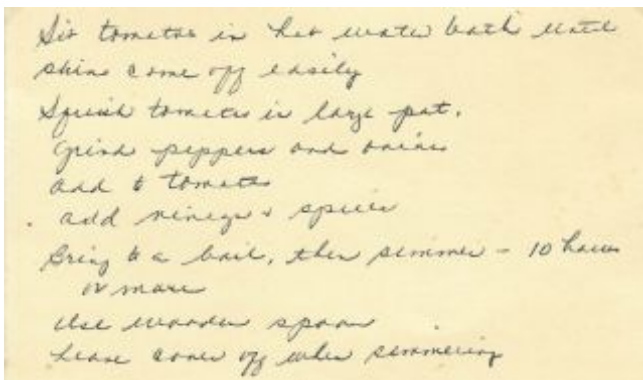 Sit tomatoes in hot water bath until
skins come off easily
Squish tomatoes in large pot.
Grind peppers and onions
add to tomatoes
add vinegar & spices
Bring to a boil, then simmer - 10 hours
or more
Use wooden spoon
Leave cover off when simmering